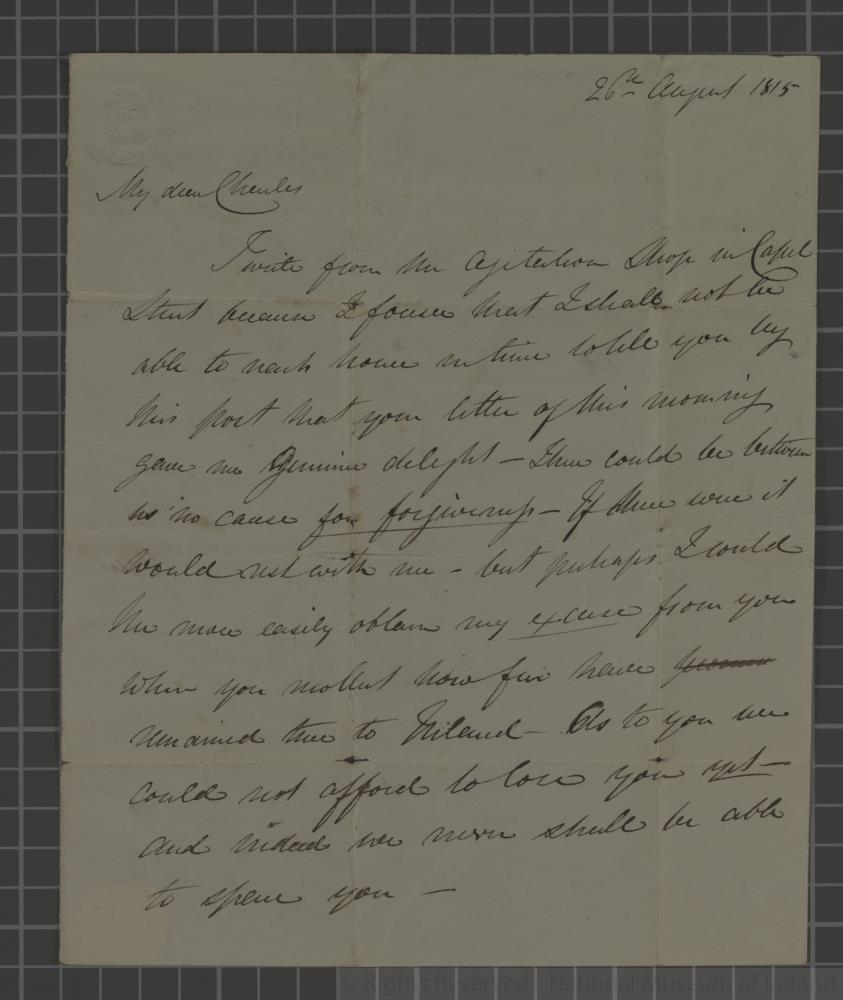 26th August 1815
My dear Charles
I write from the Agitation Shop in Capel
Street because I foresee that I shall not be
able to reach home in time to tell you by
this post that your letter of this morning
gave me Genuine delight – There could be between
us no cause for forgiveness – If there were it
would rest with me – but perhaps I could
the more easily obtain my excuse from you
when you recollect how few have
remained true to Ireland – As to you we
could not afford to lose you yet –
and indeed we never shall be able
to spare you –
© Rights Reserved - National Museum of Ireland